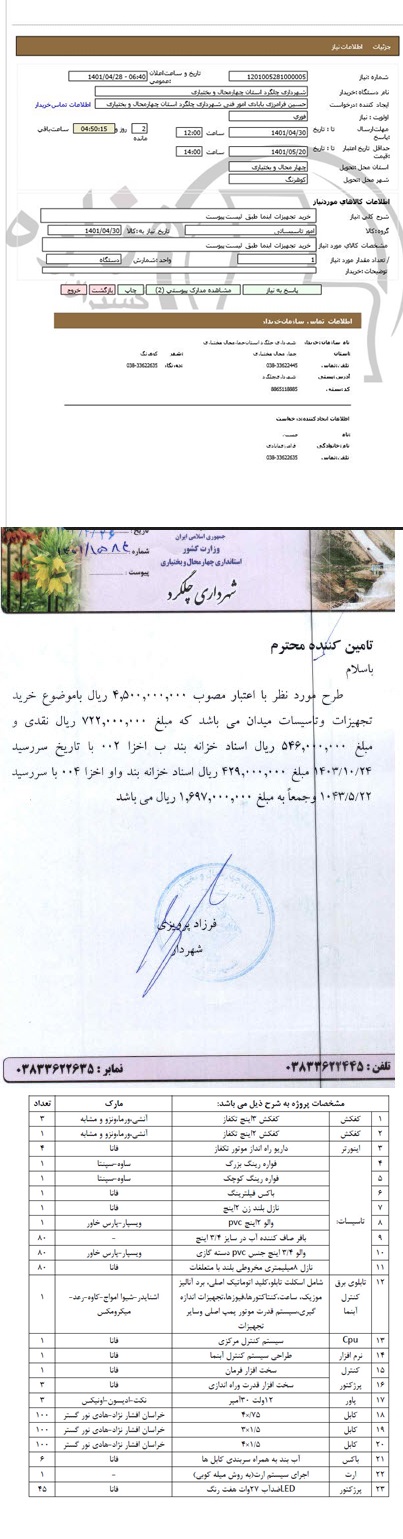 جزئیات اطلاعات نیاز
شماره نیاز: 1201005281000005 تاریخ و ساعت اعلان عمومی: 1401/04/28 - 06:40
نام دستگاه خریدار: شهرداری چلگرد استان چهارمحال و بختیاری
ایجاد کننده درخواست: حسین فرامرزی بابادی امور فنی شهرداری چلگرد استان چهارمحال و بختیاری اطلاعات تماس خریدار
اولویت نیاز: فوری
مهلت ارسال پاسخ: تا تاریخ: 1401/04/30 ساعت 12:00 2 روز و 04:50:15 ساعت باقی مانده
حداقل تاریخ اعتبار قیمت: تا تاریخ: 1401/05/20 ساعت 14:00
استان محل تحویل: چهار محال و بختیاری
شهر محل تحویل: کوهرنگ
اطلاعات کالاهای مورد نیاز
شرح کلی نیاز: خرید تجهیزات ابنما طبق لیست پیوست
گروه کالا: امور تاسیساتی تاریخ نیاز به کالا: 1401/04/30
مشخصات کالای مورد نیاز: خرید تجهیزات ابنما طبق لیست پیوست
تعداد / مقدار مورد نیاز: 1 واحد شمارش: دستگاه
توضیحات خریدار:
پاسخ به نیاز مشاهده مدارک پیوستی (2) چاپ بازگشت خروج
اطلاعات تماس سازمان خریدار
نام سازمان خریدار: شهرداری چلگرد استان چهارمحال و بختیاری
استان: چهار محال و بختیاری شهر: کوهرنگ
تلفن تماس: 038-33622445 دورنگار: 038-33622635
آدرس پستی: شهرداری چلگرد
کد پستی: 8865118885
اطلاعات ایجاد کننده درخواست
نام: حسین
نام خانوادگی: فرامرزی بابادی
تلفن تماس: 038-33622635
جمهوری اسلامی ایران
وزارت کشور
استانداری چهارمحال و بختیاری
شهرداری چلگرد
تاریخ:
شماره: ۱۴۰۱/۱۵۸۴
پیوست:
تامین کننده محترم
باسلام
طرح مورد نظر با اعتبار مصوب ۴,۵۰۰,۰۰۰,۰۰۰ ریال باموضوع خرید
تجهیزات وتاسیسات میدان می باشد که مبلغ ۷۲۲,۰۰۰,۰۰۰ ریال نقدی و
مبلغ ۵۴۶,۰۰۰,۰۰۰ ریال اسناد خزانه بند ب اخزا ۰۰۲ با تاریخ سررسید
۱۴۰۳/۱۰/۲۴ مبلغ ۴۲۹,۰۰۰,۰۰۰ ریال اسناد خزانه بند واو اخزا ۰۰۴ با سررسید
۱۰۴۳/۵/۲۲ وجمعاً به مبلغ ۱,۶۹۷,۰۰۰,۰۰۰ ریال می باشد
فرزاد پرویزی
شهردار
تلفن: ۰۳۸۳۳۶۲۲۴۴۵ نمابر: ۰۳۸۳۳۶۲۲۶۳۵
مشخصات پروژه به شرح ذیل می باشد: مارک تعداد
۱ کفکش کفکش ۳اینچ تکفاز آتشی،ورما،ونزو و مشابه ۳
۲ کفکش کفکش ۲اینچ تکفاز آتشی،ورما،ونزو و مشابه ۱
۳ اینورتر داریو راه انداز موتور تکفاز فاتا ۴
۴ فواره رینگ بزرگ ساوه-سینتا ۱
۵ فواره رینگ کوچک ساوه-سینتا ۱
۶ باکس فیلترینگ فاتا ۱
۷ نازل بلند زن ۲اینچ فاتا ۱
تاسیسات:
۸ والو ۲اینچ pvc ویسپار-پارس خاور ۱
۹ بافر صاف کننده آب در سایز ۳/۴ اینچ - ۸۰
۱۰ والو ۳/۴ اینچ جنس pvc دسته گازی ویسپار-پارس خاور ۸۰
۱۱ نازل ۸میلیمتری مخروطی بلند با متعلقات فاتا ۸۰
۱۲ تابلوی برق شامل اسکلت تابلو،کلید اتوماتیک اصلی، برد آنالیز
کنترل موزیک، ساعت،کنتاکتورها،فیوزها،تجهیزات اندازه اشنایدر-شیوا امواج-کاوه-رعد- ۱
آبنما گیری،سیستم قدرت موتور پمپ اصلی وسایر میکرومکس
تجهیزات
۱۳ Cpu سیستم کنترل مرکزی فاتا ۱
۱۴ نرم افزار طراحی سیستم کنترل آبنما فاتا ۱
۱۵ کنترل سخت افزار فرمان فاتا ۱
۱۶ پرژکتور سخت افزار قدرت وراه اندازی فاتا ۳
۱۷ پاور ۱۲ولت ۳۰آمپر نکث-ادیسون-اونیکس ۳
۱۸ کابل ۴×۰/۷۵ خراسان افشار نژاد-هادی نور گستر ۱۰۰
۱۹ کابل ۳×۱/۵ خراسان افشار نژاد-هادی نور گستر ۱۰۰
۲۰ کابل ۴×۱/۵ خراسان افشار نژاد-هادی نور گستر ۱۰۰
۲۱ باکس آب بند به همراه سربندی کابل ها فاتا ۶
۲۲ ارت اجرای سیستم ارت(به روش میله کوبی) - ۱
۲۳ پرژکتور LEDضدآب ۲۷وات هفت رنگ فاتا ۴۵